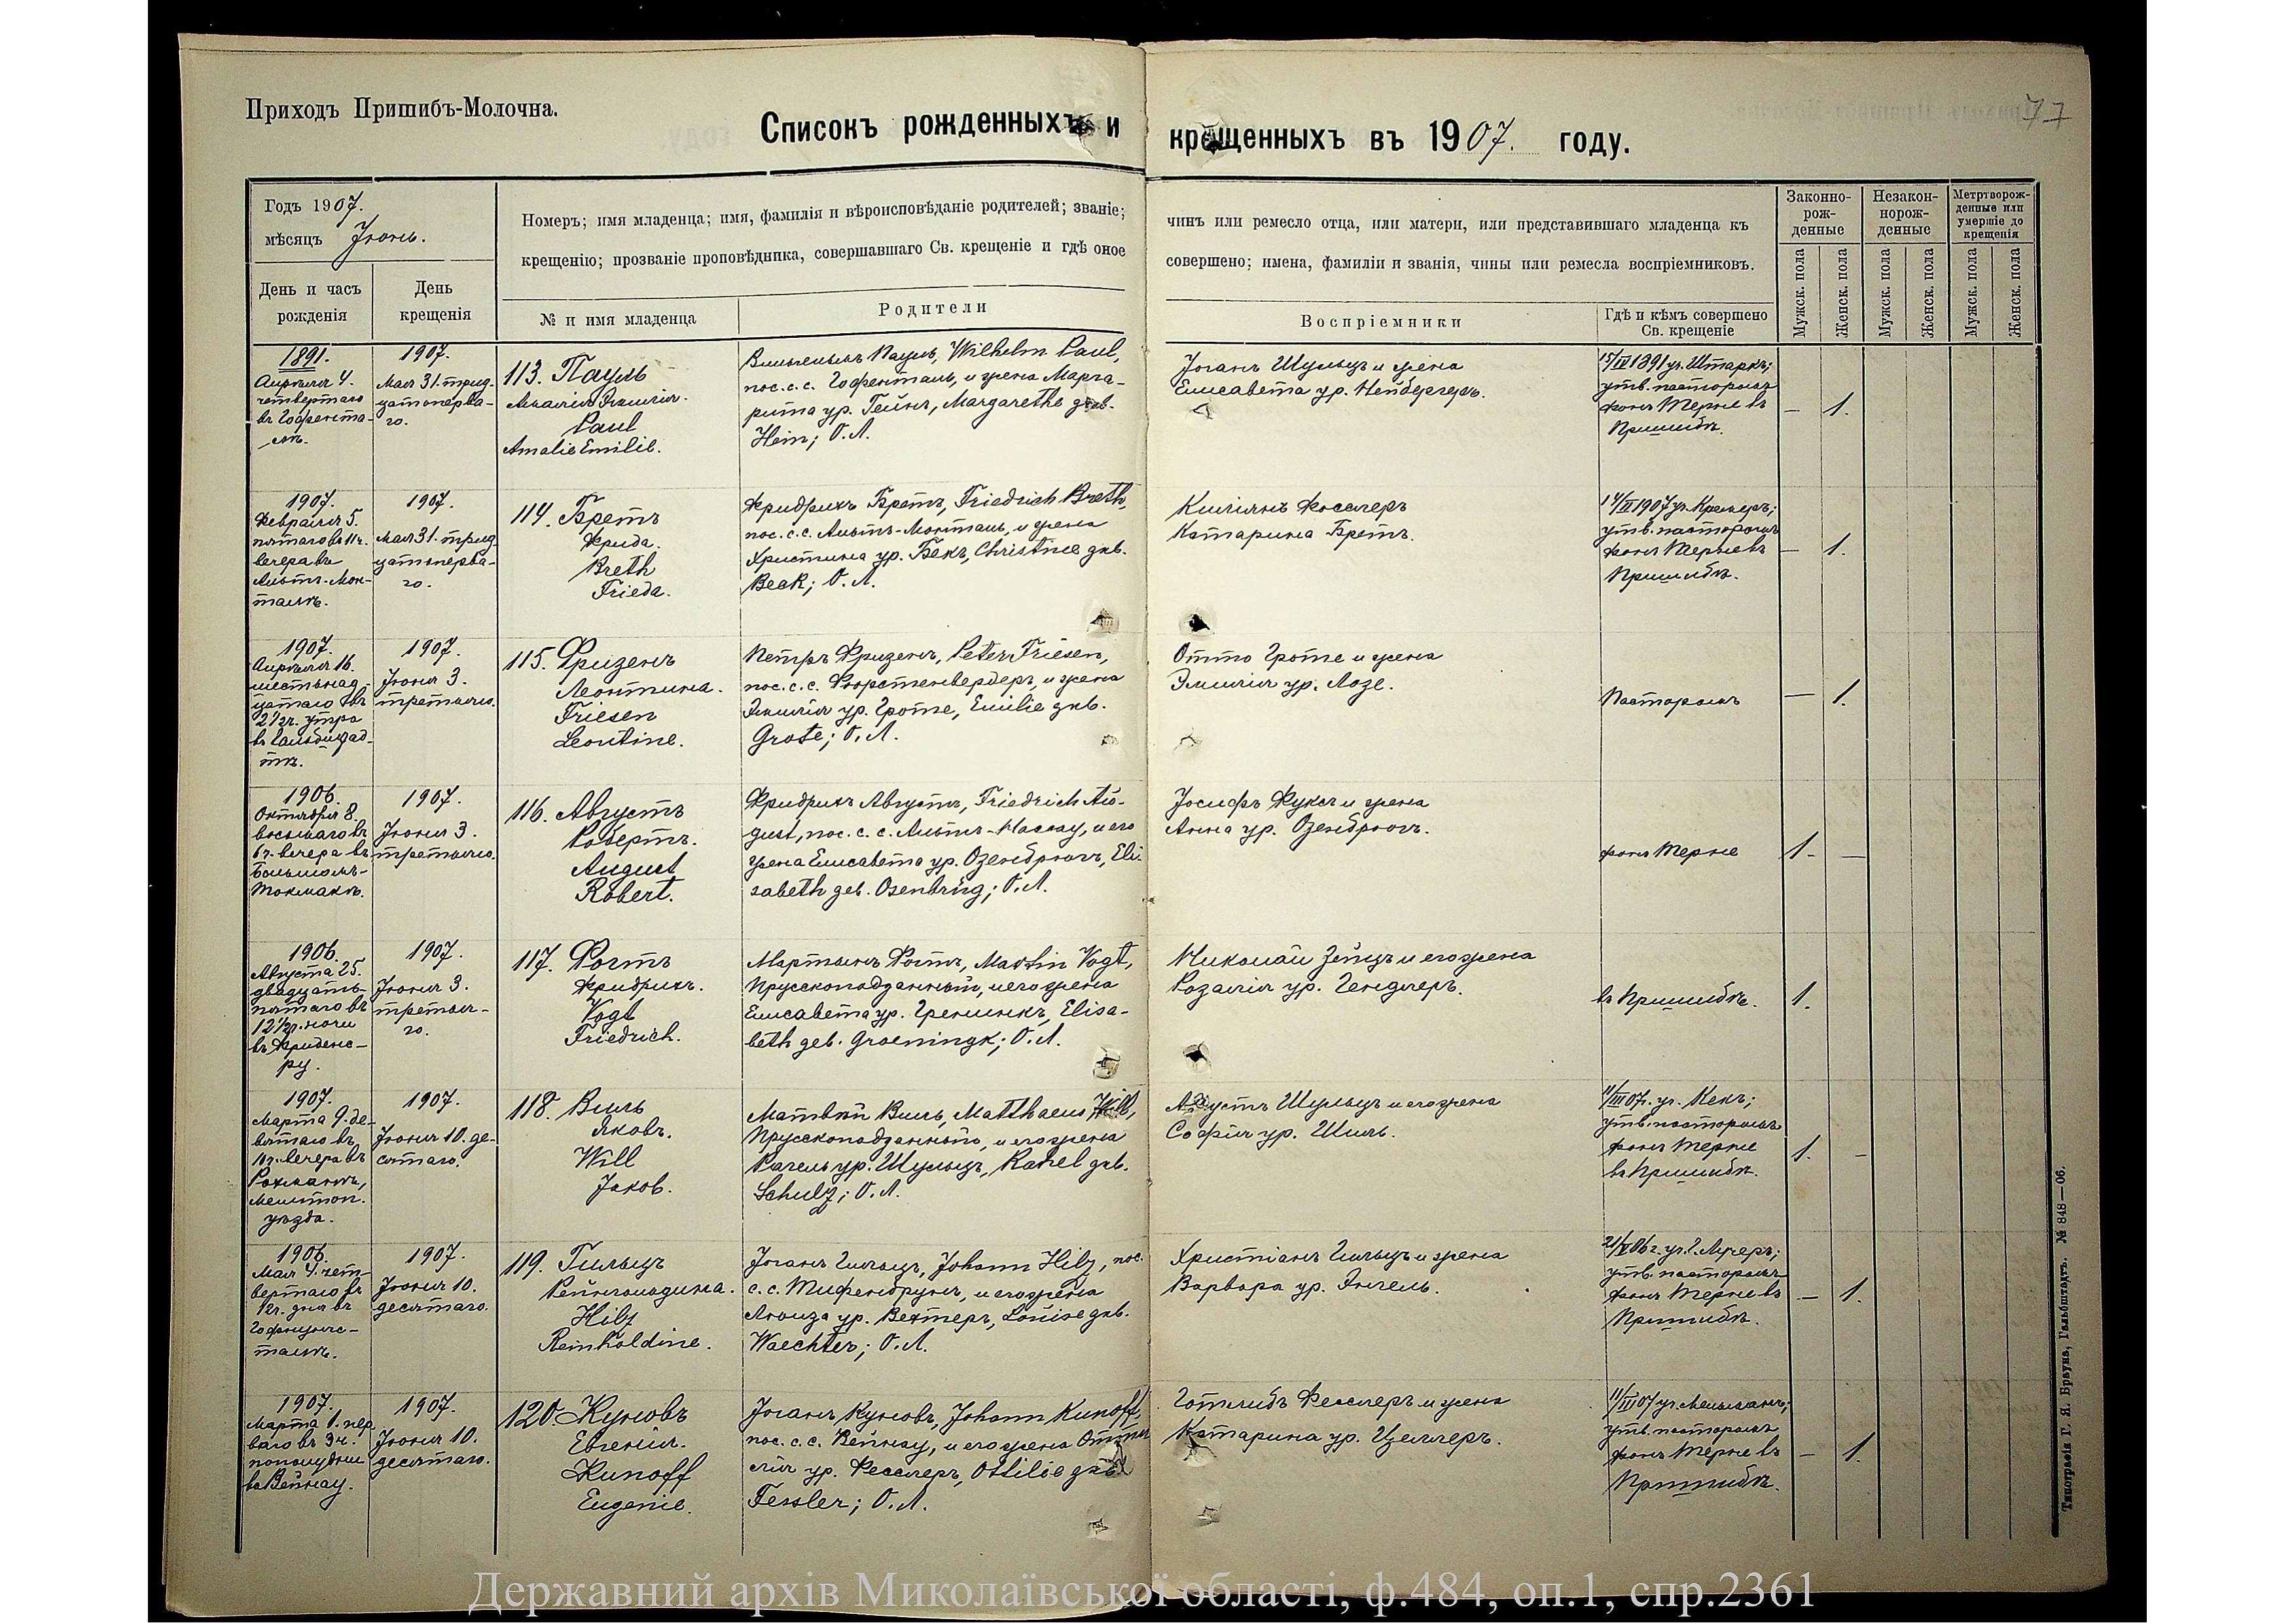 Приходъ Пришибъ-Молочна.
77
Списокъ рожденныхъ и крещенныхъ въ 1907. году.
Годъ 1907.
мѣсяцъ Іюнь.
День и часъ рожденія
День крещенія
Номеръ; имя младенца; имя, фамилія и вѣроисповѣданіе родителей; званіе; чинъ или ремесло отца, или матери, или представившаго младенца къ
крещенію; прозваніе проповѣдника, совершавшаго Св. крещеніе и гдѣ оное совершено; имена, фамиліи и званія, чины или ремесла воспріемниковъ.
№ и имя младенца
Родители
Воспріемники
Гдѣ и кѣмъ совершено
Св. крещеніе
Законно-
рож-
денные
Незакон-
норож-
денные
Метртворож-
денные или
умершіе до
крещенія
Мужск. пола
Женск. пола
Мужск. пола
Женск. пола
Мужск. пола
Женск. пола
1891.
Апрѣля 4.
четвертаго
въ Гофента-
лѣ.
1907.
Мая 31. трид-
цатьперва-
го.
113. Пауль
Амалія Эмилія.
Paul
Amalie Emilie.
Вильгельмъ Пауль, Wilhelm Paul,
пос. с. с. Гофенталь, и жена Марга-
рита ур. Гейнъ, Margarethe geb.
Hein; О. Л.
Іоганъ Шульцъ и жена
Елисавета ур. Нейбергеръ.
15/IV 1891 уч. Штаркъ;
утв. пасторомъ
фонъ Терне въ
Пришибѣ.
— 1.
1907.
Февраля 5.
пятаго въ 11 ч.
вечера въ
Альтъ-Мон-
талѣ.
1907.
Мая 31. трид-
цатьперва-
го.
114. Бретъ
Фрида.
Breth
Frieda.
Фридрихъ Бретъ, Friedrich Breth,
пос. с. с. Альтъ-Монталь, и жена
Христина ур. Бекъ, Christine geb.
Beck; О. Л.
Киліянъ Фосслеръ
Катарина Бретъ.
14/II 1907 уч. Кремеръ;
утв. пасторомъ
фонъ Терне въ
Пришибѣ.
— 1.
1907.
Апрѣля 16.
шестьнад-
цатаго въ
2½ ч. утра
въ Гальбштад-
тѣ.
1907.
Іюня 3.
третьяго.
115. Фризенъ
Леонтина.
Friesen
Leontine.
Петръ Фризенъ, Peter Friesen,
пос. с. с. Фюрстенвердеръ, и жена
Эмилія ур. Гроте, Emilie geb.
Grote; О. Л.
Отто Гроте и жена
Эмилія ур. Лозе.
Пасторомъ
— 1.
1906.
Октября 8.
восьмаго въ
6 ч. вечера въ
Большомъ-
Токмакѣ.
1907.
Іюня 3.
третьяго.
116. Августъ
Робертъ.
August
Robert.
Фридрихъ Августъ, Friedrich Au-
gust, пос. с. с. Альтъ-Нассау, и его
жена Елисавета ур. Озенбрюгъ, Eli-
sabeth geb. Osenbrüg; О. Л.
Іосифъ Фуксъ и жена
Анна ур. Озенбрюгъ.
фонъ Терне
1. —
1906.
Августа 25.
двадцать-
пятаго въ
12½ ч. ночи
въ Фриденс-
ру.
1907.
Іюня 3.
третья-
го.
117. Фогтъ
Фридрихъ.
Vogt
Friedrich.
Мартынъ Фогтъ, Martin Vogt,
Прусскоподданный, и его жена
Елисавета ур. Гренинкъ, Elisa-
beth geb. Groeningk; О. Л.
Николай Зейцъ и его жена
Розалія ур. Гендлеръ.
въ Пришибѣ.
1.
1907.
Марта 9. де-
вятаго въ
10 ч. вечера въ
Мелитоп.
уѣзда.
1907.
Іюня 10. де-
сятаго.
118. Виль
Яковъ.
Will
Jakob.
Матвѣй Виль, Matthaeus Will,
Прусскоподданный, и его жена
Рахель ур. Шульцъ, Rahel geb.
Schulz; О. Л.
Августъ Шульцъ и его жена
Софія ур. Шиль.
11/III 07 г. уч. Кекъ;
утв. пасторомъ
фонъ Терне
въ Пришибѣ.
1. —
1906.
Мая 4. чет-
вертаго въ
12 ч. дня въ
талѣ.
1907.
Іюня 10.
десятаго.
119. Гильцъ
Рейнгольдина.
Hilz
Reinholdine.
Іоганъ Гильцъ, Johann Hilz, пос.
с. с. Тифенбрунъ, и его жена
Луиза ур. Вехтеръ, Louise geb.
Waechter; О. Л.
Христіанъ Гильцъ и жена
Варвара ур. Энгель.
21/V 06 г. уч. Г. Лучеръ;
утв. пасторомъ
фонъ Терне въ
Пришибѣ.
— 1.
1907.
Марта 1. пер-
ваго въ 3 ч.
пополудни
въ Вейнау.
1907.
Іюня 10.
десятаго.
120. Куновъ
Евгенія.
Kunoff
Eugenie.
Іоганъ Куновъ, Johann Kunoff,
пос. с. с. Вейнау, и его жена Отти-
лія ур. Фесслеръ, Ottilie geb.
Fessler; О. Л.
Готлибъ Фесслеръ и жена
Катарина ур. Целлеръ.
11/III 07 уч. Мельманъ;
утв. пасторомъ
фонъ Терне въ
Пришибѣ.
— 1.
Типографія Г. Я. Брауна, Гальбштадтъ. № 848—06.
Державний архів Миколаївської області, ф.484, оп.1, спр.2361